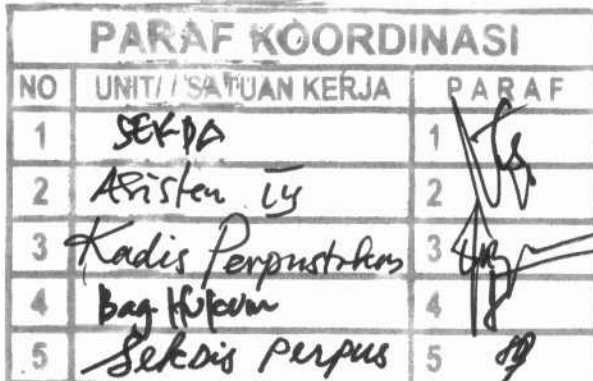 PARAF KOORDINASI
NO UNIT/ / SATUAN KERJA PARAF
1 SEKDA 1
2 Asisten 2
3 Kadis Perpustakaan 3
4 Bag Hukum 4
5 Sekdis perpus 5